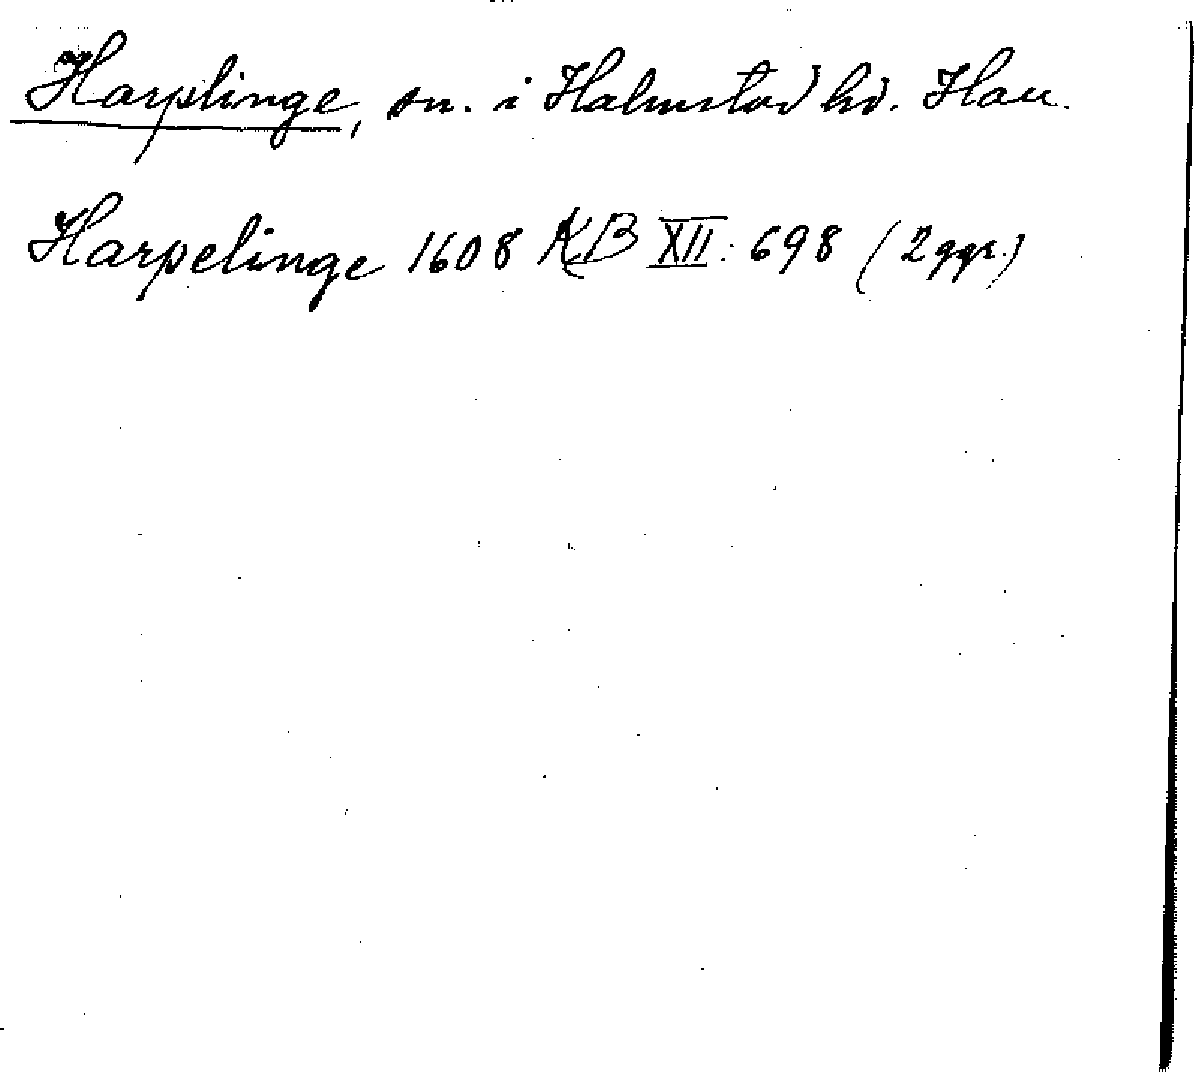 Harplinge, sn. i Halmstad hd. Hall.
Harpelinge 1608 KB XII: 698 (2 ggr.)